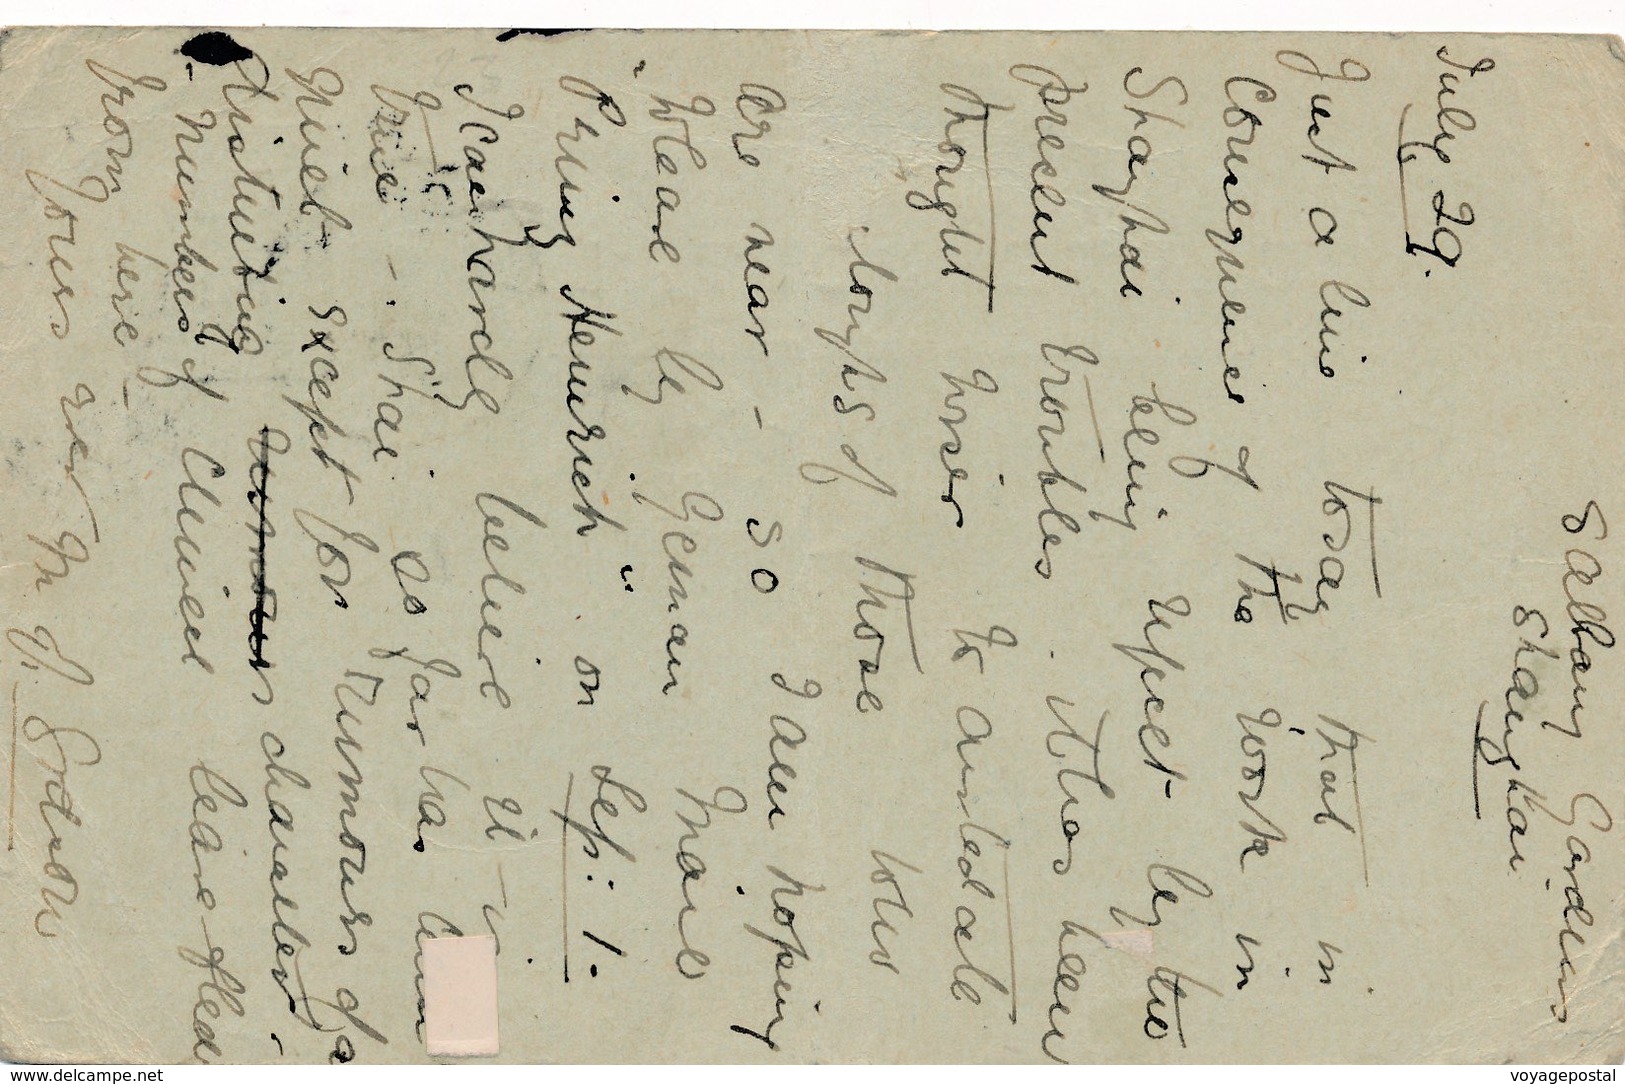 5 Albany Gardens
Shanghai
July 29.
Just a line today that in
Consequence of the work in
Shanghai being upset by the
present troubles. it has been
thought wiser to antedate
-loughs of those who
are near - so I am hoping
to leave by German Mail
"Prinz Heinrich" on Sep: 1.
I can hardly believe it is
true -. S'hai so far has been
quiet except for rumours of a
disturbing rumours character.
- Numbers of Chinese leave fled
from here -
Yours ver M. J.
www.delcampe.net
voyagepostal